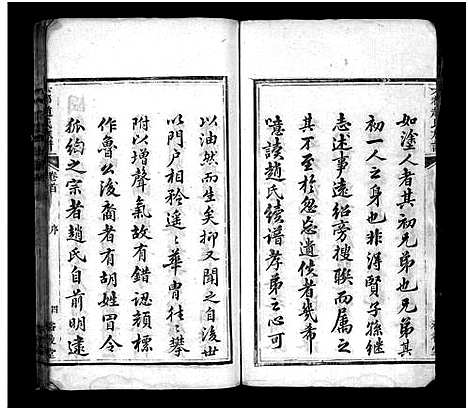 如塗人者其初兄弟也兄弟其
初一人之身也非得賢子孫継
志述事遠紹旁搜聯而属之
其不至於忽忘遺佚者幾希
噫讀趙氏續譜孝弟之心可
以油然而生矣抑又聞之自後世
以門户相矜遥遥華胄往往攀
附以增聲氣故有錯認顔標
作魯公後裔者有胡姓冒令
狐绹之宗者趙氏自前明逮
卷首
序
四